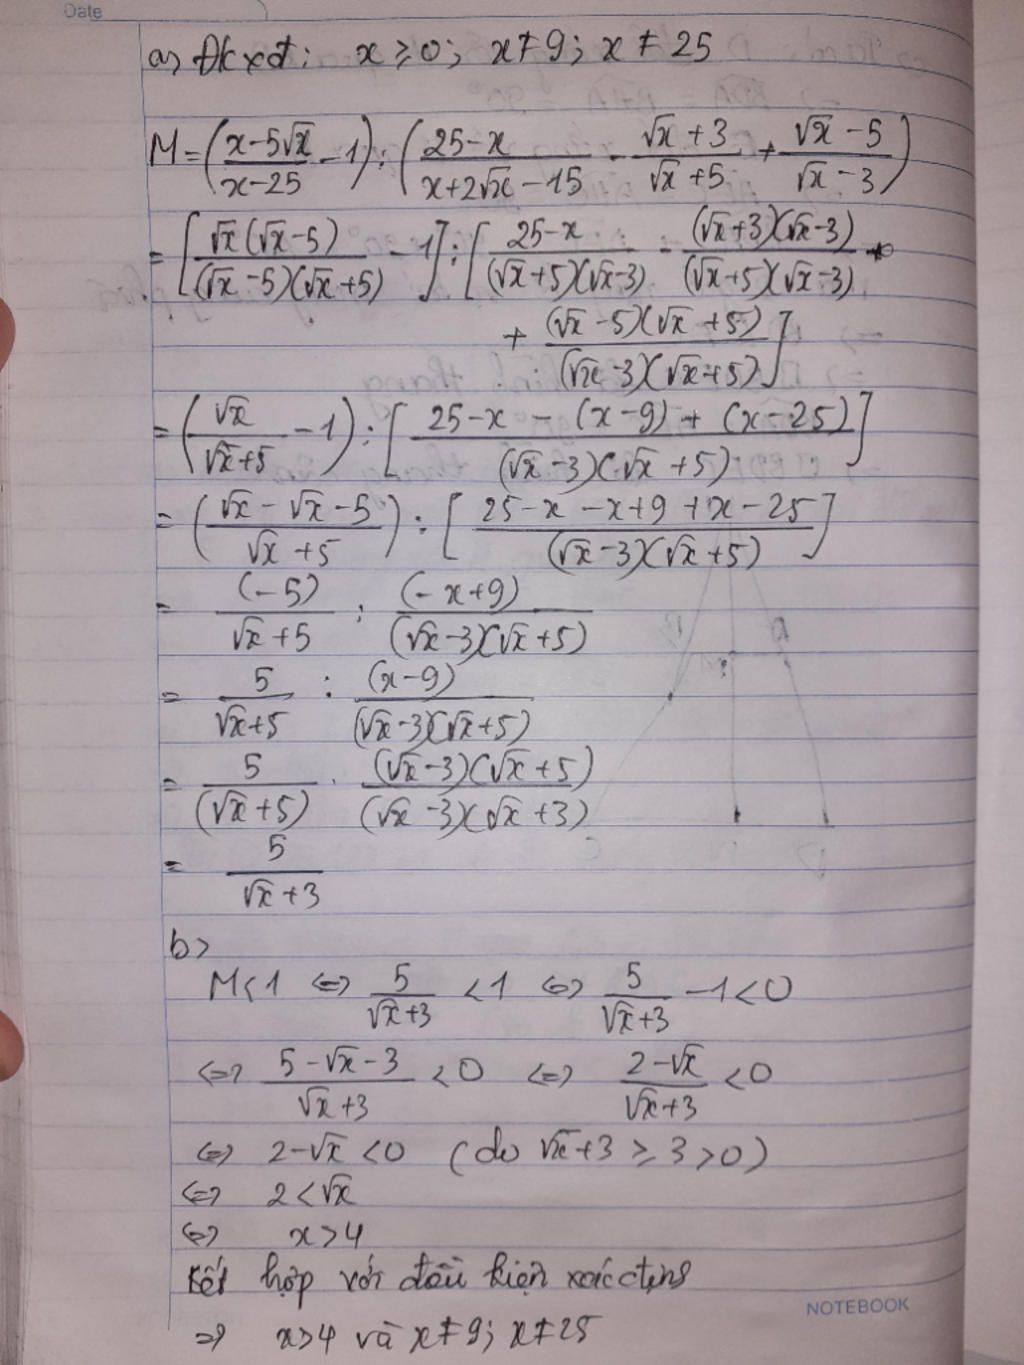 Date
a) Đkxđ: x ≥ 0; x ≠ 9; x ≠ 25
M = ((x-5√x)/(x-25) - 1) : ((25-x)/(x+2√x-15) - (√x+3)/(√x+5) + (√x-5)/(√x-3))
= [(√x(√x-5))/((√x-5)(√x+5)) - 1] : [(25-x)/((√x+5)(√x-3)) - ((√x+3)(√x-3))/((√x+5)(√x-3)) +
+ ((√x-5)(√x+5))/((√x-3)(√x+5))]
= (√x/(√x+5) - 1) : [(25-x - (x-9) + (x-25))/((√x-3)(√x+5))]
= ((√x-√x-5)/(√x+5)) : [(25-x-x+9+x-25)/((√x-3)(√x+5))]
= (-5)/(√x+5) : (-x+9)/((√x-3)(√x+5))
= 5/(√x+5) : (x-9)/((√x-3)(√x+5))
= 5/(√x+5) . ((√x-3)(√x+5))/((√x-3)(√x+3))
= 5/(√x+3)
b)
M<1 ⇔ 5/(√x+3) <1 ⇔ 5/(√x+3) -1<0
⇔ (5-√x-3)/(√x+3) <0 ⇔ (2-√x)/(√x+3) <0
⇔ 2-√x <0 (do √x+3 ≥ 3 >0)
⇔ 2<√x
⇔ x>4
Kết hợp với điều kiện xác định
⇒ x>4 và x≠9; x≠25
NOTEBOOK